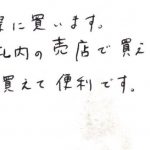 に買います。
内の売店で買え
買えて便利です。